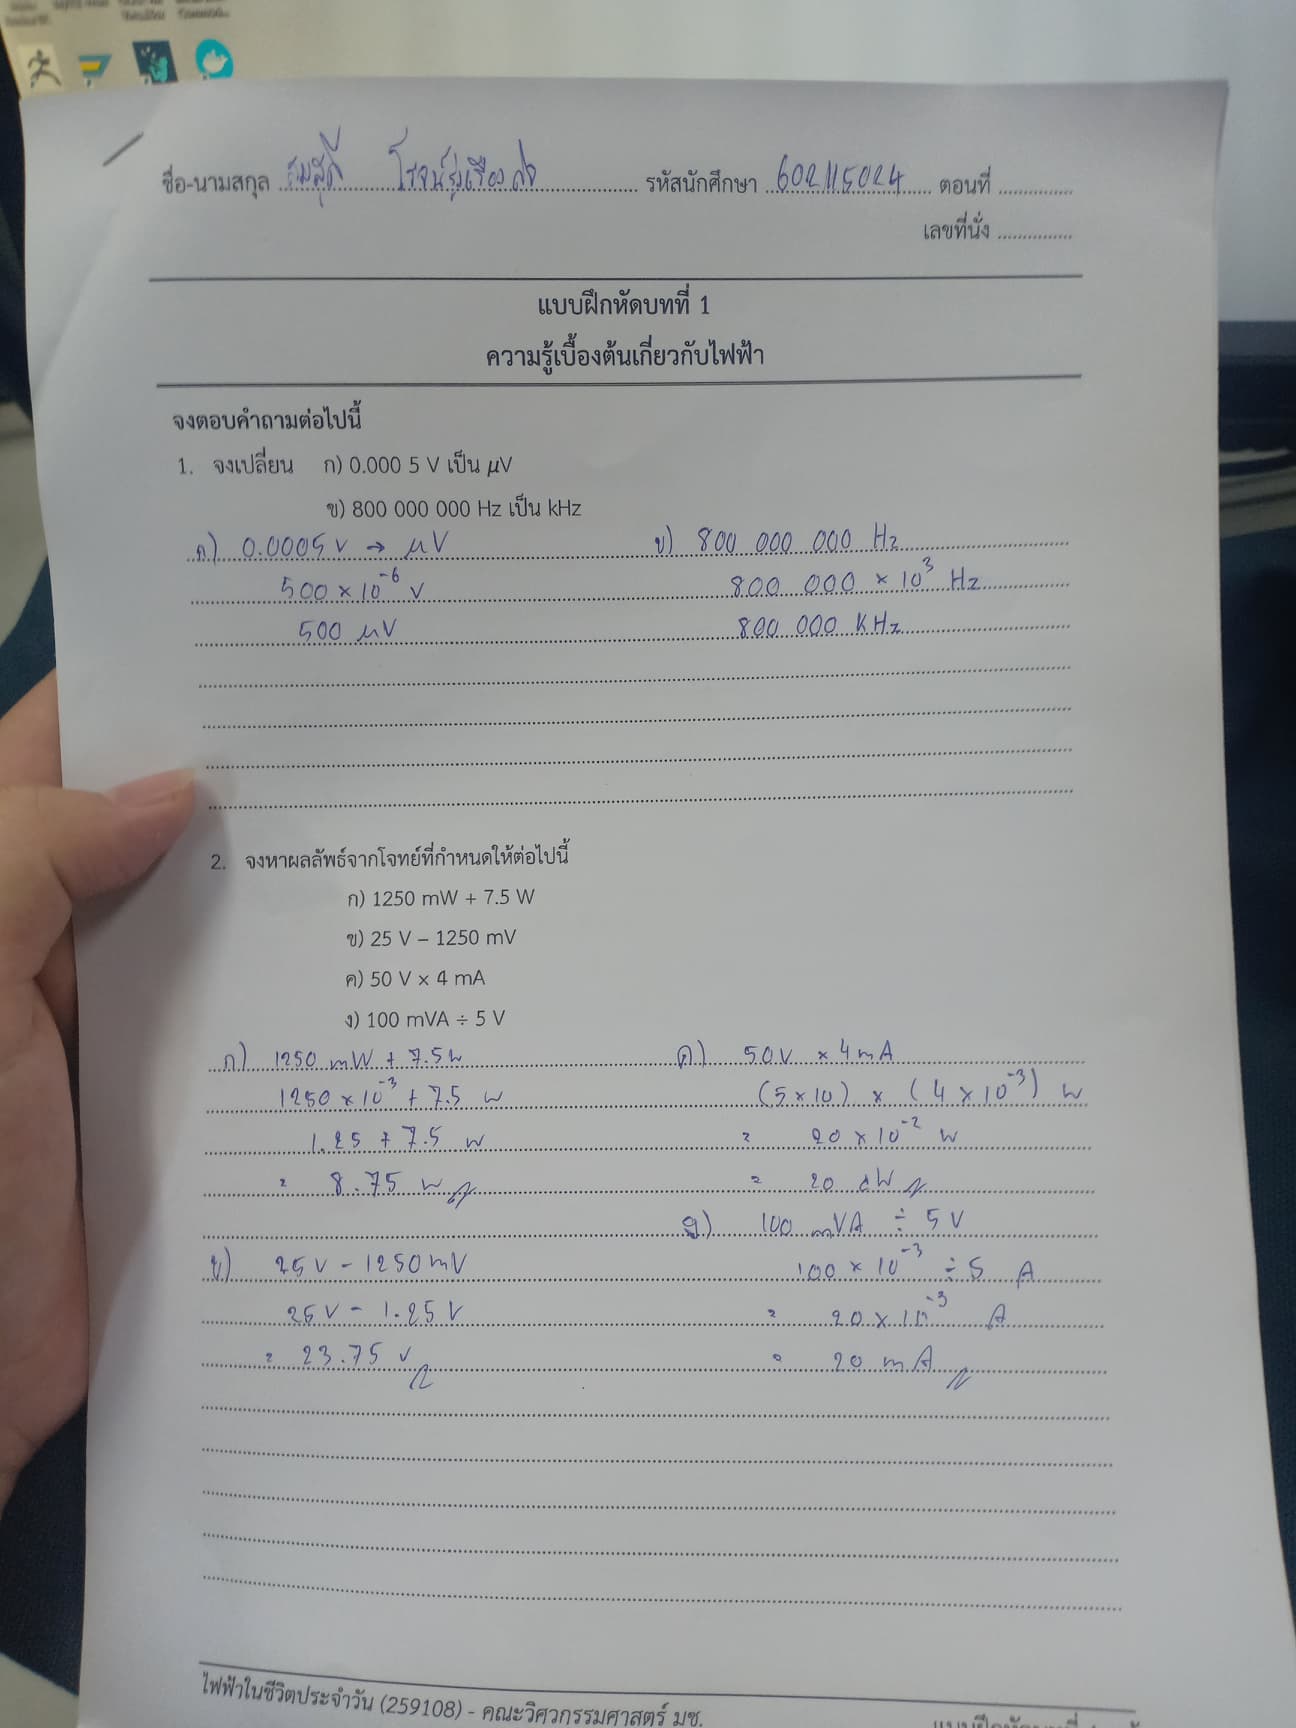 ชื่อ-นามสกุล รหัสนักศึกษา 602115024 ตอนที่
เลขที่นั่ง
แบบฝึกหัดบทที่ 1
ความรู้เบื้องต้นเกี่ยวกับไฟฟ้า
จงตอบคำถามต่อไปนี้
1. จงเปลี่ยน ก) 0.000 5 V เป็น μV
ข) 800 000 000 Hz เป็น kHz
ก) 0.0005 V → μV
500 × 10⁻⁶ V
500 μV
ข) 800 000 000 Hz
800 000 × 10³ Hz
800 000 KHz
2. จงหาผลลัพธ์จากโจทย์ที่กำหนดให้ต่อไปนี้
ก) 1250 mW + 7.5 W
ข) 25 V – 1250 mV
ค) 50 V × 4 mA
ง) 100 mVA ÷ 5 V
ก) 1250 mW + 7.5 W
1250 × 10⁻³ + 7.5 W
1.25 + 7.5 W
= 8.75 W
ข) 25 V - 1250 mV
25 V - 1.25 V
= 23.75 V
ค) 50 V × 4 mA
(5 × 10) × (4 × 10⁻³) W
= 20 × 10⁻² W
= 20 dW
ง) 100 mVA ÷ 5 V
100 × 10⁻³ ÷ 5 A
= 20 × 10⁻³ A
= 20 mA
ไฟฟ้าในชีวิตประจำวัน (259108) - คณะวิศวกรรมศาสตร์ มช.